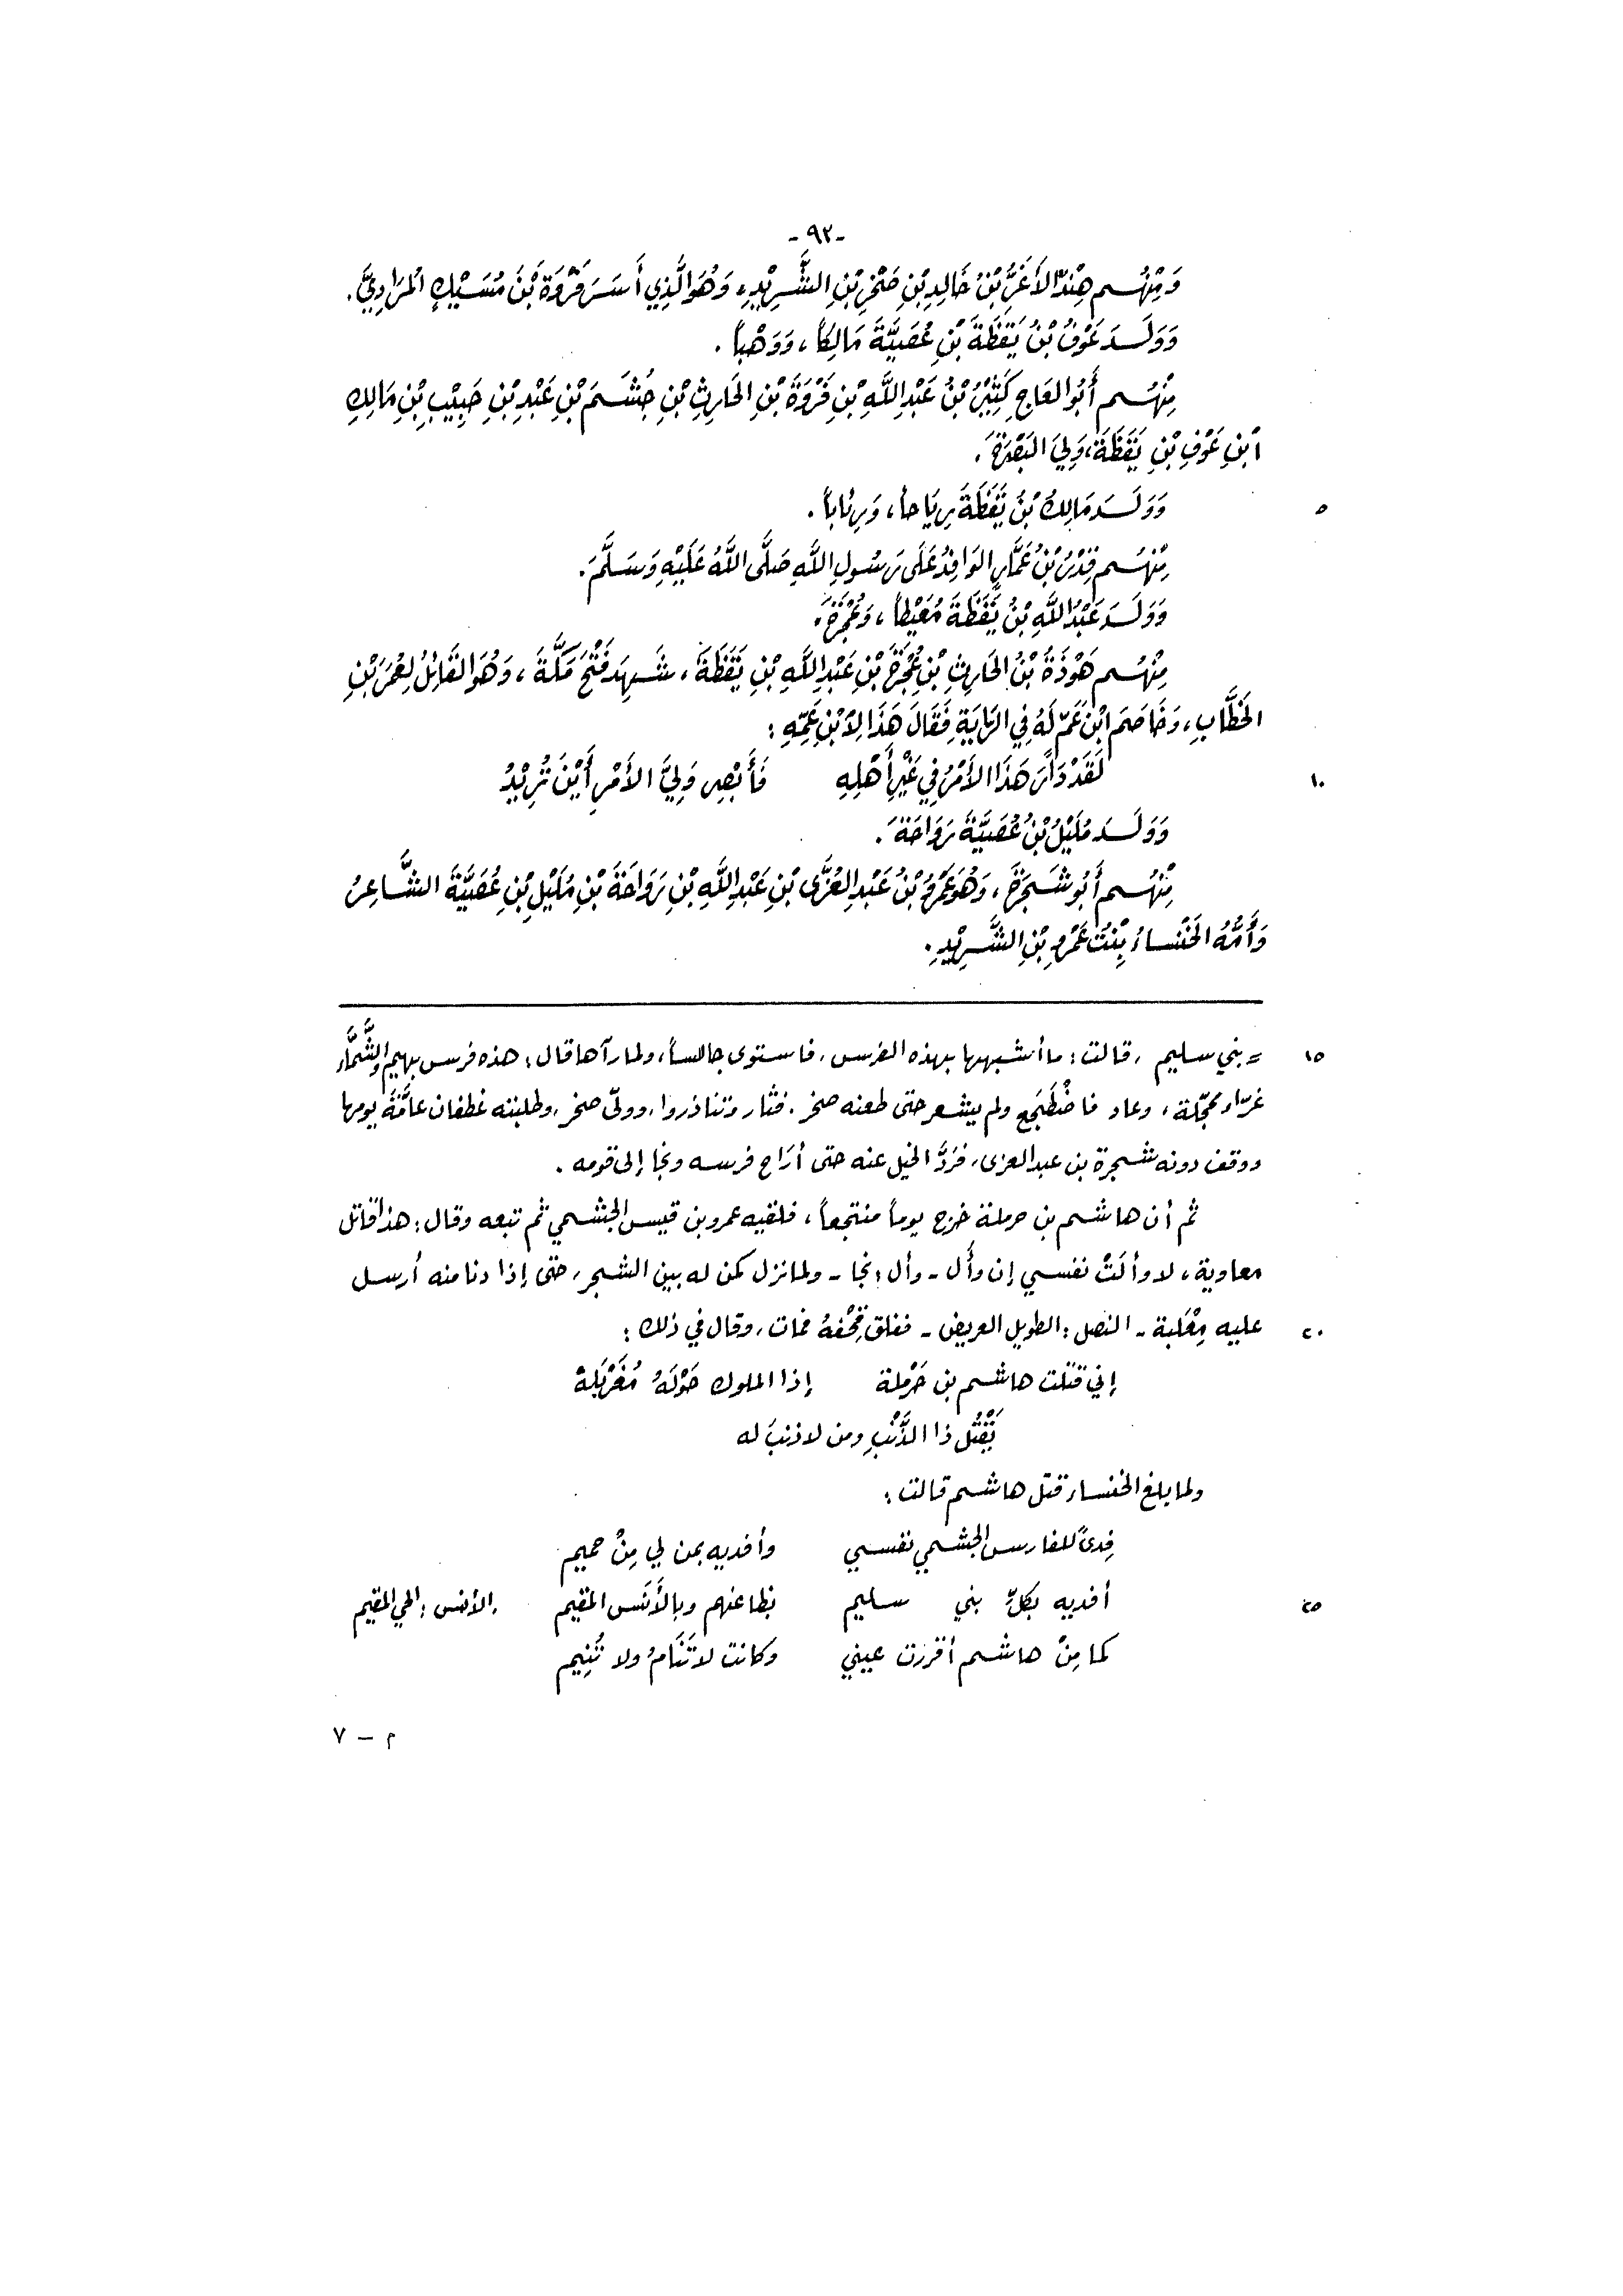 -٩٢-
وَمِنْهُم هِنْدُ الأَغَرُّ بْنُ خَالِدِ بْنِ صَخْرِ بْنِ الشَّرِيْدِ، وَهُوَ الَّذِي أَسَرَ فَرْوَةَ بْنَ مُسَيْكٍ المُرَادِيَّ.
وَوَلَدَ عَوْفُ بْنُ يَقَظَةَ بْنِ عُصَيَّةَ مَالِكَاً، وَوَهْبَاً.
مِنْهُم أَبُو العَاجِ كَثِيْرُ بْنُ عَبْدِ اللَّهِ بْنِ فَرْوَةَ بْنِ الحَارِثِ بْنِ جُشَمَ بْنِ عَبْدِ بْنِ حَبِيْبِ بْنِ مَالِكِ
ابْنِ عَوْفِ بْنِ يَقَظَةَ، وَلِيَ البَصْرَةَ.
٥ وَوَلَدَ مَالِكُ بْنُ يَقَظَةَ رِيَاحاً، وَرِئَاباً.
مِنْهُم قِدْرُ بْنُ عَمَّارٍ الوَافِدُ عَلَى رَسُولِ اللَّهِ صَلَّى اللَّهُ عَلَيْهِ وَسَلَّمَ.
وَوَلَدَ عَبْدُ اللَّهِ بْنُ يَقَظَةَ مُعَيْطاً، وَعُجْرَةَ.
مِنْهُم هَوْذَةُ بْنُ الحَارِثِ بْنِ عُجْرَةَ بْنِ عَبْدِ اللَّهِ بْنِ يَقَظَةَ، شَهِدَ فَتْحَ مَكَّةَ، وَهُوَ القَائِلُ لِعُمَرَ بْنِ
الخَطَّابِ، وَخَاصَمَ ابْنَ عَمٍّ لَهُ فِي الرَّايَةِ فَقَالَ هَذَا لِابْنِ عَمِّهِ:
١٠ لَقَدْ دَارَ هَذَا الأَمْرُ فِي غَيْرِ أَهْلِهِ فَأَبْصِر وَلِيَّ الأَمْرِ أَيْنَ تُرِيْدُ
وَوَلَدَ مُلَيْلُ بْنُ عُصَيَّةَ رَوَاحَةَ.
مِنْهُم أَبُو شَجَرَةَ، وَهُوَ عَمْرُو بْنُ عَبْدِ العُزَّى بْنِ عَبْدِ اللَّهِ بْنِ رَوَاحَةَ بْنِ مُلَيْلِ بْنِ عُصَيَّةَ الشَّاعِرُ
وَأُمُّهُ الخَنْسَاءُ بِنْتُ عَمْرِو بْنِ الشَّرِيْدِ.
١٥ = بني سليم، قالت: ما أشبهها بهذه الفرس، فاستوى جالساً، ولما رآها قال: هذه فرس بهيم والشَّمَّاء
غرّاء محجّلة، وعاد فاضْطَجَع ولم يشعر حتى طعنه صخر. فثار وتناذروا، وولّى صخر، وطلبته غطفان عامَّةَ يومها
ووقف دونه شجرة بن عبد العزى، فَرَدَّ الخيل عنه حتى أرَاح فرسه ونجا إلى قومه.
ثم أن هاشم بن حرملة خرج يوماً منتجعاً، فلقيه عمرو بن قيس الجشمي ثم تبعه وقال: هذا قاتل
معاوية، لا وألَتْ نفسي إن وأَل - وأل: نجا - ولما نزل كمن له بين الشجر، حتى إذا دنا منه أرسل
٢٠ عليه مِعْبلة - النصل: الطويل العريض - ففلق قِحْفهُ فمات، وقال في ذلك:
إني قَتَلت هاشم بن حَرْملة إذا الملوك حَوْلَهُ مُغَرْبَلهْ
يَقْتُل ذا الذَّنْبِ ومن لا ذنبَ له
ولما بلغ الخنساء قتل هاشم قالت:
فِدىً للفارس الجشمي نفسي وأفديه بمن لي مِنْ حميم
٢٥ أفديه بكلِّ بني سليم بظاعنهم وبالأَنَس المقيم .الأنس: الحي المقيم
كما مِنْ هاشم أقررت عيني وكانت لا تَنَامُ ولا تُنِيم
م – ٧